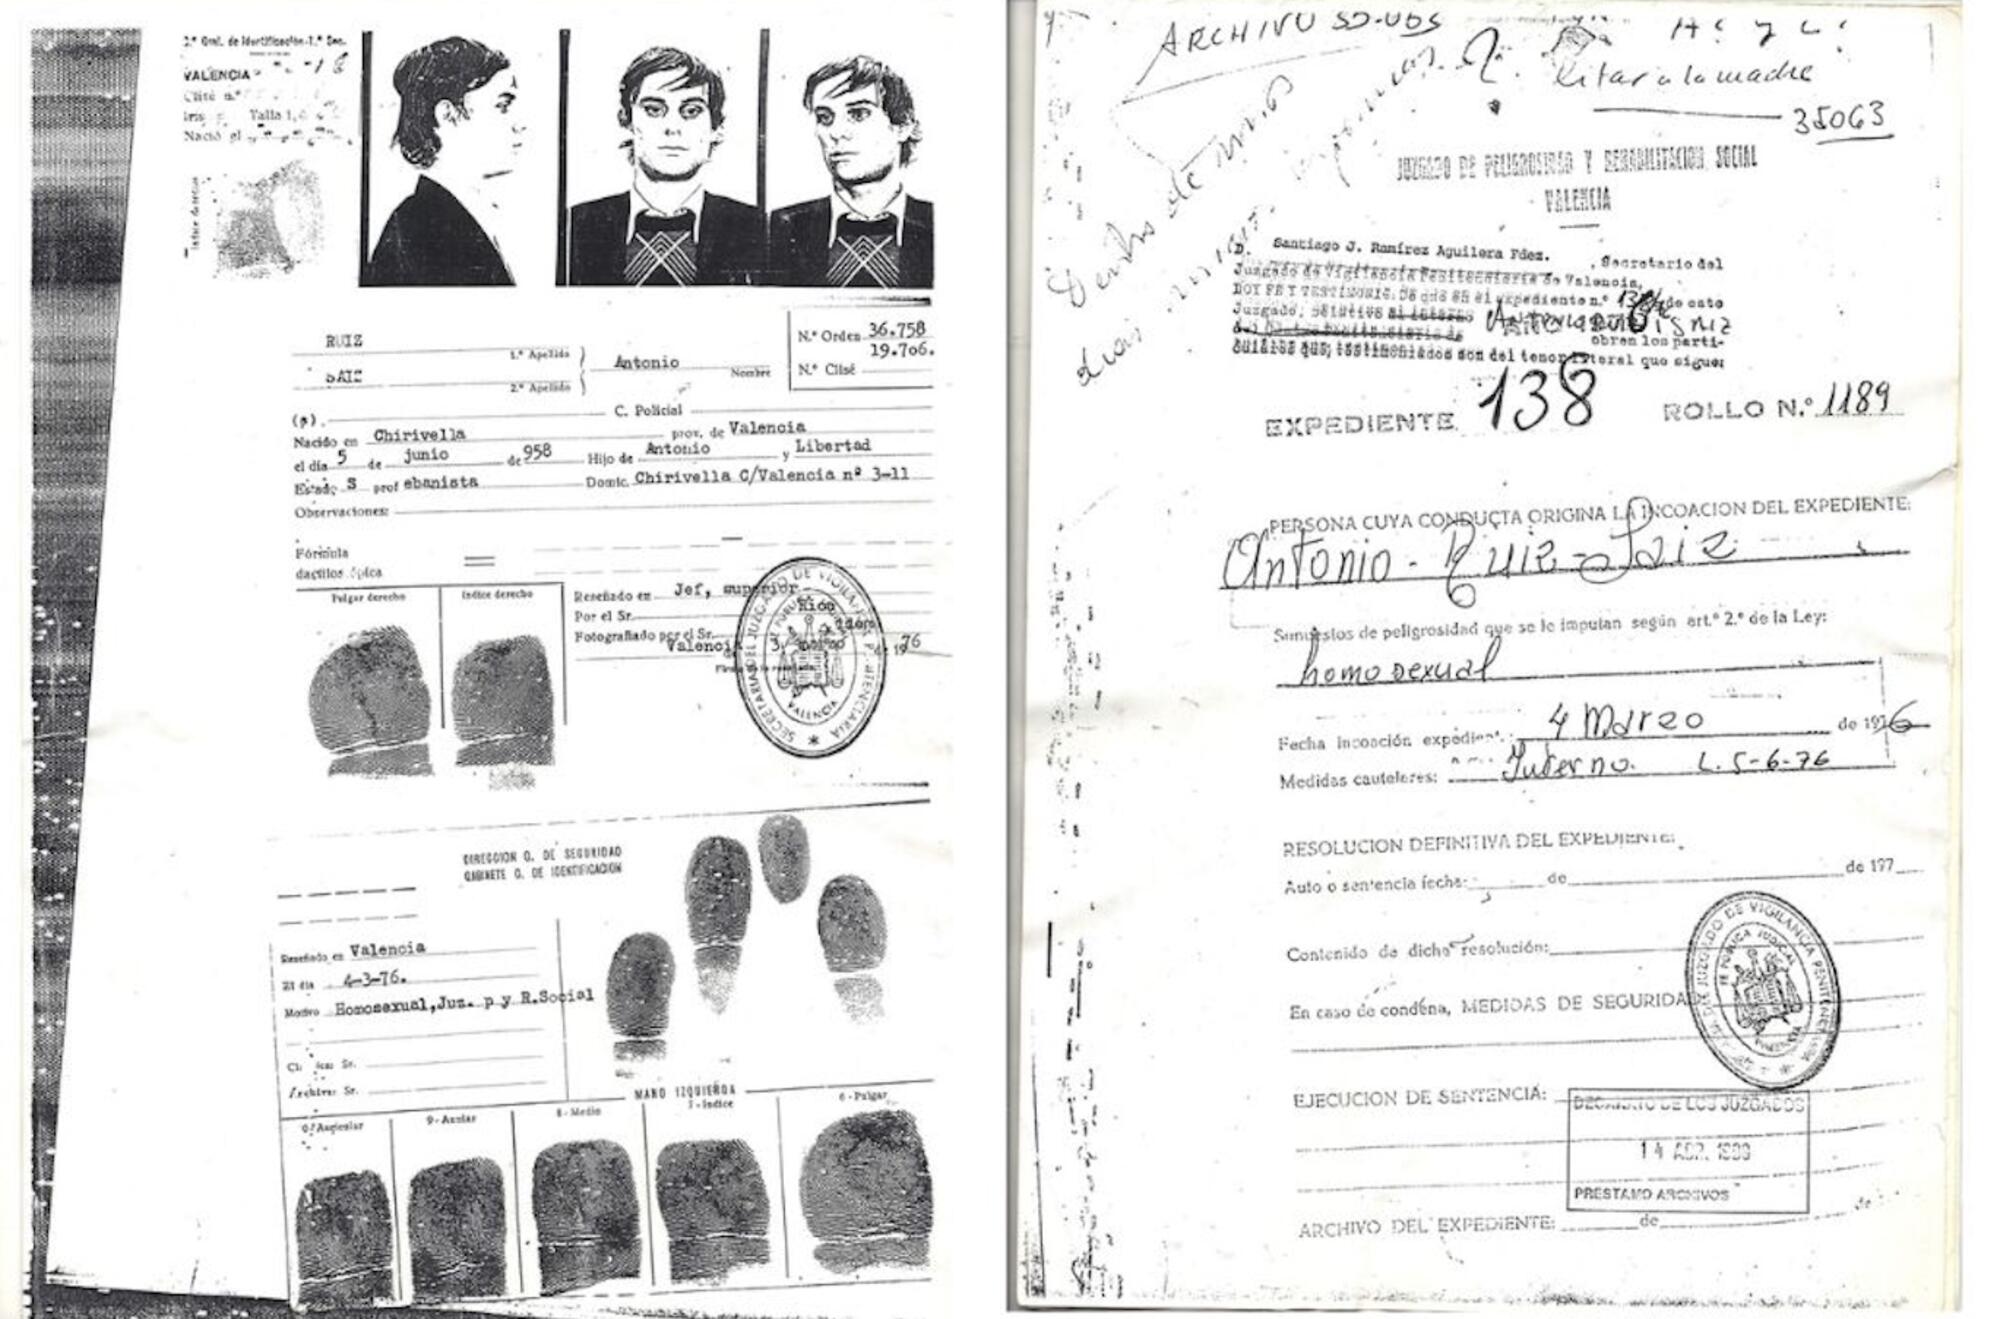 2ª Gral. de Identificación-1.ª Sec.
VALENCIA
Clisé n.º
Iris Talla 1,
Nació el
Indice derecho
RUIZ
1.º Apellido
SAIZ
2.º Apellido
Antonio
Nombre
N.º Orden 36.758
19.706.
N.º Clisé
(a) C. Policial
Nacido en Chirivella prov. de Valencia
el día 5 de junio de 958 Hijo de Antonio y Libertad
Estado S prof ebanista Domic. Chirivella C/Valencia nº 3-11
Observaciones:
Fórmula
dactiloscópica
Pulgar derecho
Indice derecho
Reseñado en Jef, superior
Por el Sr. Rico
Fotografiado por el Sr. idem
Valencia 3 de 1976
SECRETARIA DEL JUZGADO DE VIGILANCIA PENITENCIARIA
FE PUBLICA JUDICIAL
VALENCIA
DIRECCION G. DE SEGURIDAD
GABINETE G. DE IDENTIFICACION
Reseñado en Valencia
El día 4-3-76.
Motivo Homosexual,Juz. p y R.Social
Clasificar Sr.
Archivar Sr.
MANO IZQUIERDA
0-Auricular
9-Anular
8-Medio
7-Indice
6-Pulgar
ARCHIVO SD-UDS
H. y L.
Citar a la madre
35063
Dentro de unos
dias
JUZGADO DE PELIGROSIDAD Y REHABILITACION SOCIAL
VALENCIA
D. Santiago J. Ramírez Aguilera Fdez. , Secretario del
Juzgado de Vigilancia Penitenciaria de Valencia,
DOY FE Y TESTIMONIO: De que en el expediente n.º 138/76 de este
Juzgado, relativo al interno
ANTONIO RUIZ SAIZ
del
obren los parti-
culares que, testimoniados son del tenor literal que sigue:
EXPEDIENTE 138 ROLLO N.º 1189
PERSONA CUYA CONDUCTA ORIGINA LA INCOACION DEL EXPEDIENTE:
Antonio - Ruiz - Saiz
Supuestos de peligrosidad que se le imputan según art.º 2.º de la Ley:
homosexual
Fecha incoación expediente: 4 Marzo de 1976
Medidas cautelares: Interno. L. 5-6-76
RESOLUCION DEFINITIVA DEL EXPEDIENTE:
Auto o sentencia fecha: de de 197
Contenido de dicha resolución:
En caso de condena, MEDIDAS DE SEGURIDAD
SECRETARIA DEL JUZGADO DE VIGILANCIA PENITENCIARIA
FE PUBLICA JUDICIAL
VALENCIA
EJECUCION DE SENTENCIA:
DECANATO DE LOS JUZGADOS
14 ABR. 1999
PRESTAMO ARCHIVOS
ARCHIVO DEL EXPEDIENTE: de de